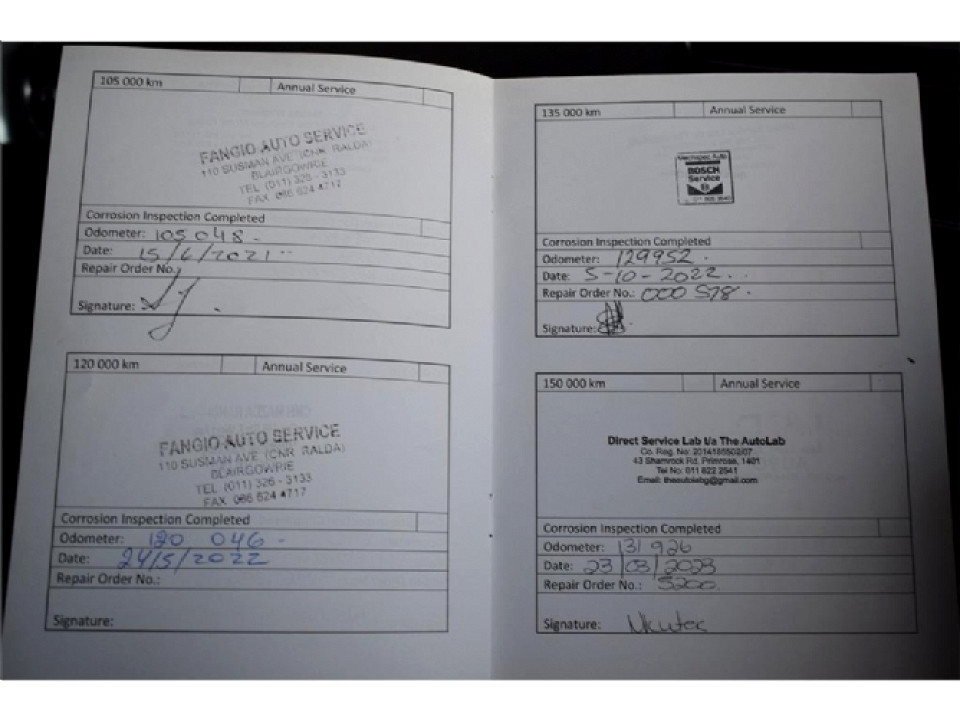 105 000 km Annual Service
FANGIO AUTO SERVICE
110 SUSMAN AVE (CNR RALDA)
BLAIRGOWRIE
TEL (011) 326 - 3133
FAX 086 624 4717
Corrosion Inspection Completed
Odometer: 105 048 -
Date: 15/6/2021
Repair Order No.:
Signature:
120 000 km Annual Service
FANGIO AUTO SERVICE
110 SUSMAN AVE (CNR RALDA)
BLAIRGOWRIE
TEL (011) 326 - 3133
FAX 086 624 4717
Corrosion Inspection Completed
Odometer: 120 046 -
Date: 24/5/2022
Repair Order No.:
Signature:
135 000 km Annual Service
BOSCH
Service
Corrosion Inspection Completed
Odometer: 129952
Date: 5-10-2022
Repair Order No.: 000 578
Signature:
150 000 km Annual Service
Direct Service Lab t/a The AutoLab
Co. Reg. No: 2014185502/07
43 Shamrock Rd, Primrose, 1401
Tel No: 011 822 2541
Email: theautolabg@gmail.com
Corrosion Inspection Completed
Odometer: 131 926
Date: 23/03/2023
Repair Order No.: 5200
Signature: